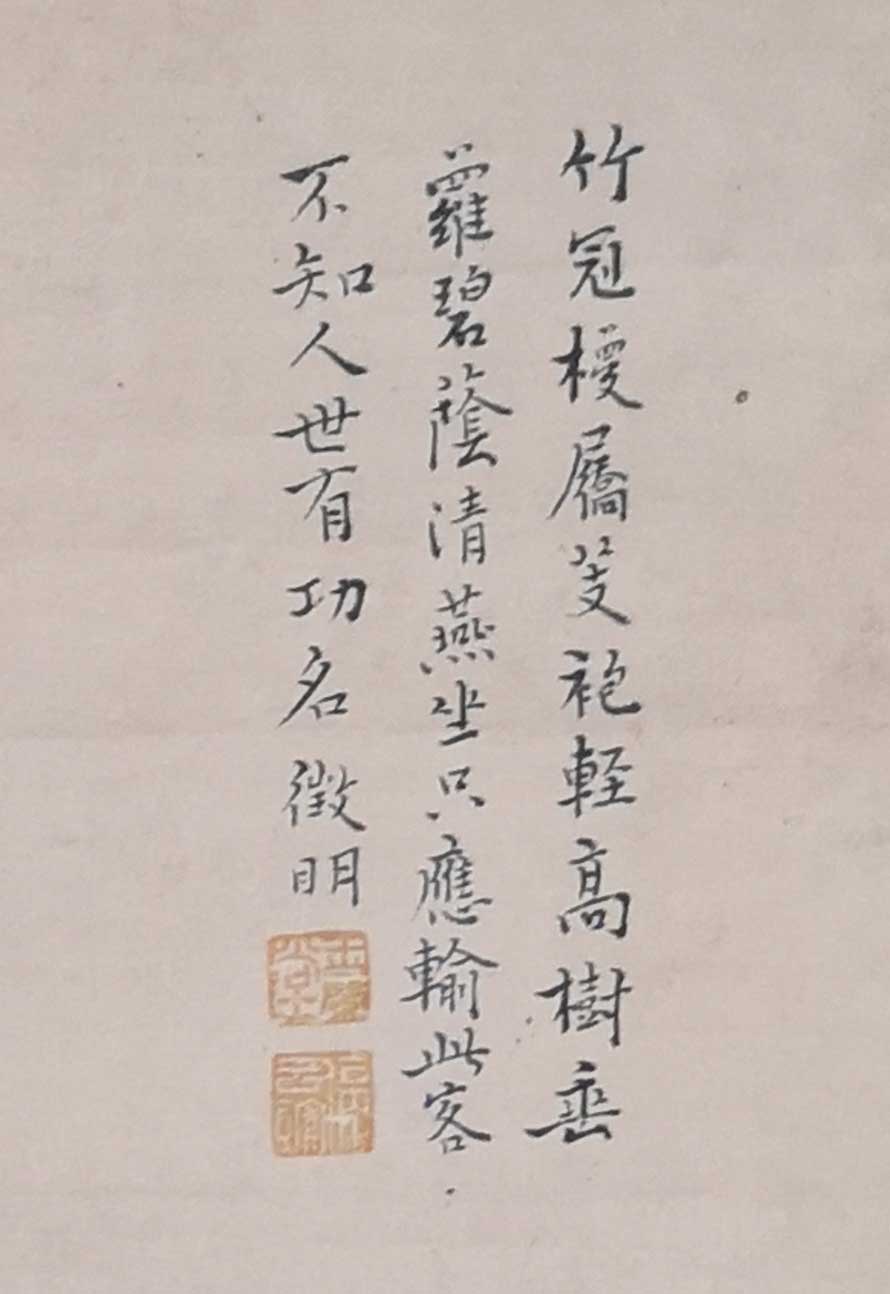 竹冠椶屩芰袍輕高樹垂
蘿碧蔭清燕坐只應輸此客
不知人世有功名徵明
玉蘭堂